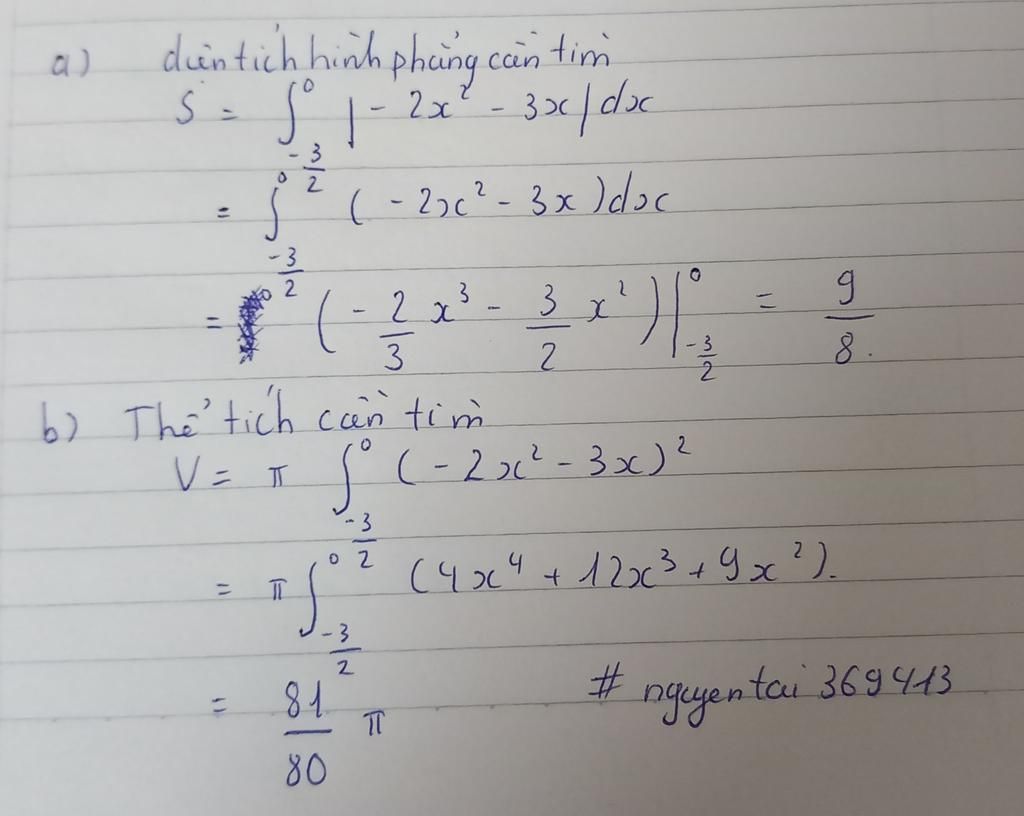 a) diện tích hình phẳng cần tìm
S = ∫_{-3/2}^{0} |-2x² - 3x| dx
= ∫_{-3/2}^{0} (-2x² - 3x) dx
= (-2/3 x³ - 3/2 x²) |_{-3/2}^{0} = 9/8.
b) Thể tích cần tìm
V = π ∫_{-3/2}^{0} (-2x² - 3x)²
= π ∫_{-3/2}^{0} (4x⁴ + 12x³ + 9x²).
= 81/80 π
# nguyentai 369413